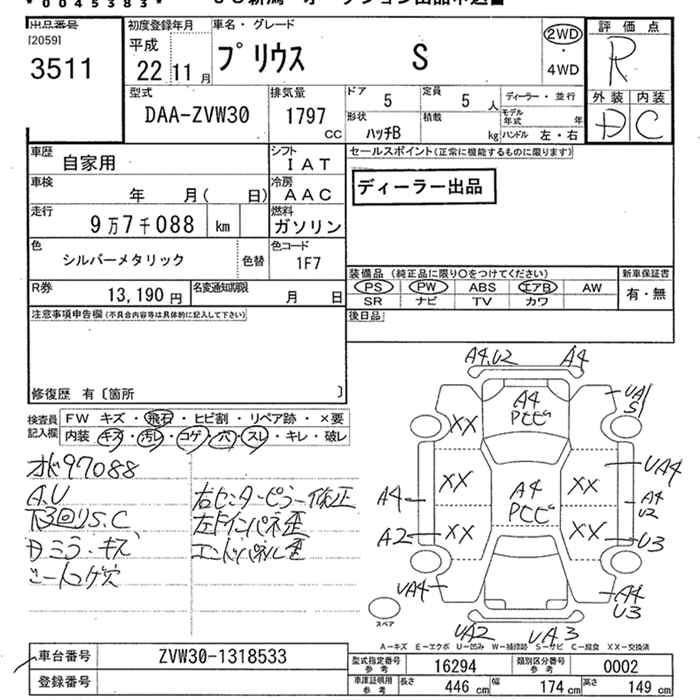 *0045383*
出品番号
[2059]
3511
初度登録年月
平成
22 11月
車名・グレード
プリウス S
2WD
・
4WD
評価点
R
外装 内装
D C
型式
DAA-ZVW30
排気量
1797
CC
ドア
5
定員
5 人
ディーラー・並行
形状
ハッチB
積載
kg
モデル年式 年
ハンドル 左・右
車歴
自家用
シフト
IAT
セールスポイント(正常に機能するものに限ります)
ディーラー出品
車検
年 月( 日)
冷房
AAC
走行
9万7千088 km
燃料
ガソリン
色
シルバーメタリック
色替
色コード
1F7
R券
13,190 円
名変通知期限
月 日
装備品 (純正品に限り○をつけてください)
PS PW ABS エアB AW
SR ナビ TV カワ
新車保証書
有・無
注意事項申告欄(不具合内容等は具体的に記入して下さい)
後日品
修復歴 有〔箇所 〕
検査員記入欄
FW キズ・飛石・ヒビ割・リペア跡・×要
内装 キズ・汚レ・コゲ・穴・スレ・キレ・破レ
97088
A.U
下回りS.C
ミラーキズ
シートコゲ穴
右センターピラー修正
左ドインパネ歪
エンドパネル歪
A4.U2 A4
A4
UA/S
XX
XX XX
XX XX
A4
A4
A2
UA4
UA4
A4
U2
U3
A4
U3
UA2 UA3
スペア
A-キズ E-エクボ U-凹み W-補修跡 S-サビ C-腐食 XX-交換済
車台番号
ZVW30-1318533
登録番号
型式指定番号 参考
16294
類別区分番号 参考
0002
車庫証明用 参考
長さ 446 cm
幅 174 cm
高さ 149 cm